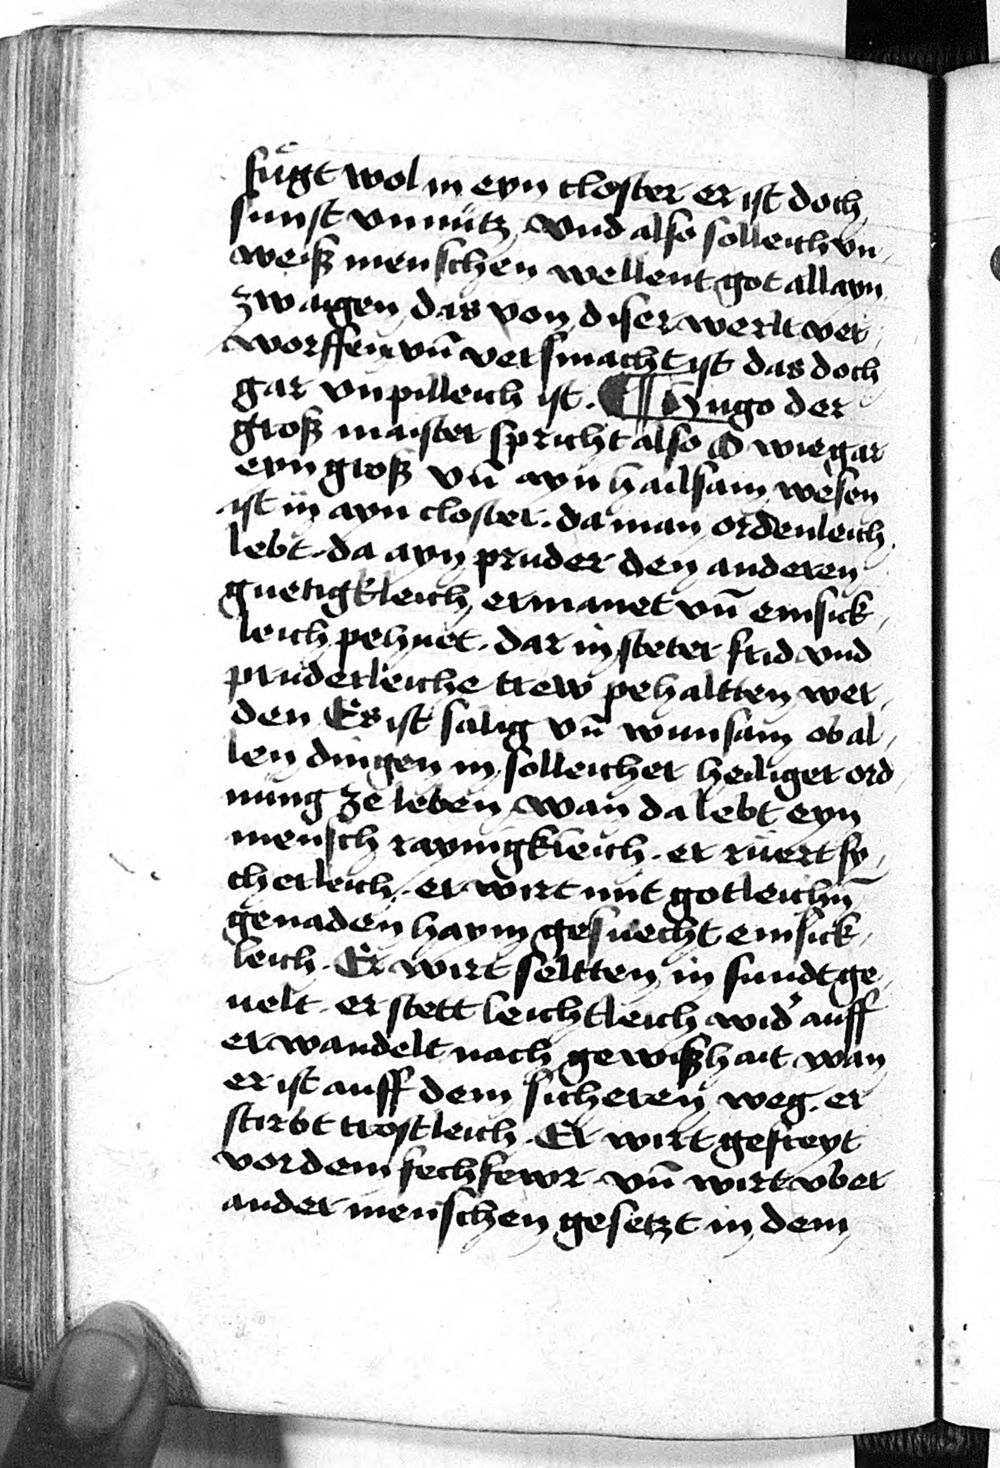 fuͤgt wol in eyn closter er ist doch
sunst vnnuͤtz Vnd also solleich vn-
weiß menschen wellent got allayn
zwaigen das von diser werlt ver-
worffen vn̄ versmacht ist das doch
gar vnpilleich ist. ¶ Hugo der
groß maister spricht also O wie gar
eyn groß vn̄ ayn hailsam wesen
ist in ayn closter. da man ordenleich
lebt. da ayn pruder den anderen
guetigkleich ermanet vn̄ emsick-
leich pehuet. dar in steter frid vnd
pruderleiche trew pehaltten wer-
den Es ist salig vn̄ wunsam ob al-
len dingen in solleicher heiliger ord
nung ze leben wan da lebt eyn
mensch raynigkleich. er ruert sy-
cherleich. er wirt mit gotleichn̄
genaden haym gesuecht emsick-
leich. Er wirt seltten in sundt ge-
uelt. er stett leichtleich wid' auff
er wandelt nach gewißhait wan
er ist auff dem sicheren weg. er
stirbt trostleich. Er wirt gefreyt
vor dem fechfewr vn̄ wirt vber
ander menschen gesetzt in dem